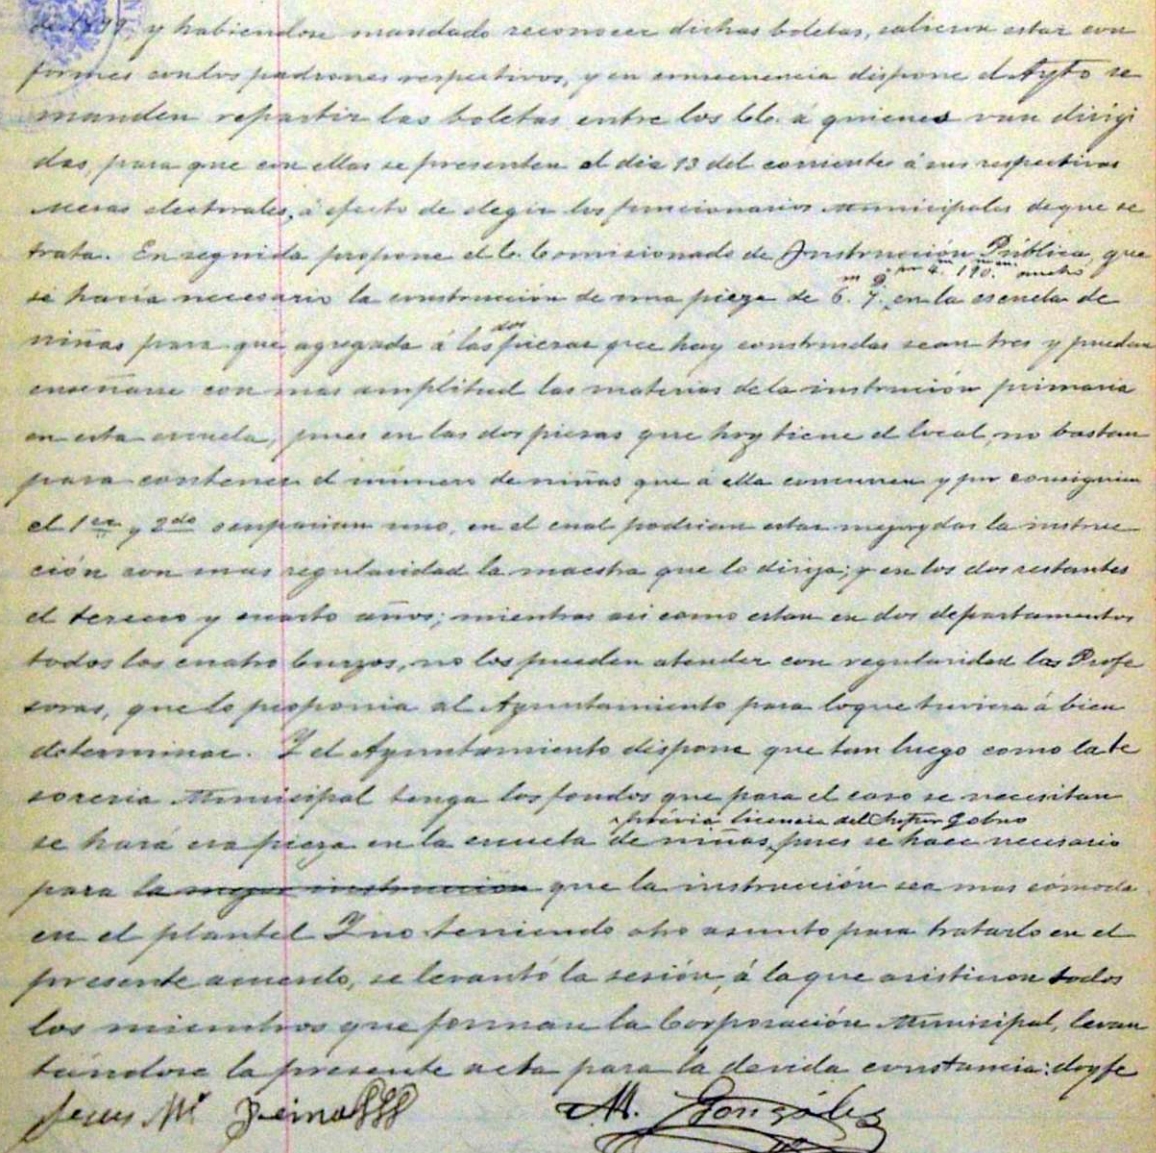 de 1899 y habiendose mandado reconocer dichas boletas, salieron estar con
formes con los padrones respectivos, y en consecuencia dispone el Ayto se
manden repartir las boletas entre los CC. á quienes van dirigi
das, para que con ellas se presenten el dia 13 del corriente á sus respectivas
mesas electorales, á efecto de elegir los funcionarios Municipales de que se
trata. En seguida propone el C. Comisionado de Instrucción Pública, que
se hacia necesario la construcción de una pieza de 6. 7. en la escuela de
niñas para que agregada á las dos piezas que hay construidas sean tres y puedan
enseñarse con mas amplitud las materias de la instrucción primaria
en esta escuela, pues en las dos piezas que hoy tiene el local, no bastan
para contener el número de niñas que á ella concurren y por consiguien
el 1er y 2do ocuparian uno, en el cual podrian estar mejor y dar la instruc
ción con mas regularidad la maestra que lo dirija; y en los dos restantes
el tercero y cuarto años; mientras asi como estan en dos departamentos
todos los cuatro cursos, no los pueden atender con regularidad las Profe
soras, que lo proponia al Ayuntamiento para lo que tuviera á bien
determinar. Y el Ayuntamiento dispone que tan luego como la te
soreria Municipal tenga los fondos que para el caso se necesitan
previa licencia del Supr Gobno
se hará esa pieza en la escuela de niñas, pues se hace necesario
para la mejor instrucción que la instrucción sea mas cómoda
en el plantel Y no teniendo otro asunto para tratarlo en el
presente acuerdo, se levantó la sesión, á la que asistieron todos
los miembros que forman la Corporación Municipal, levan
tándose la presente acta para la devida constancia: doy fe
Jesus Ma M. González